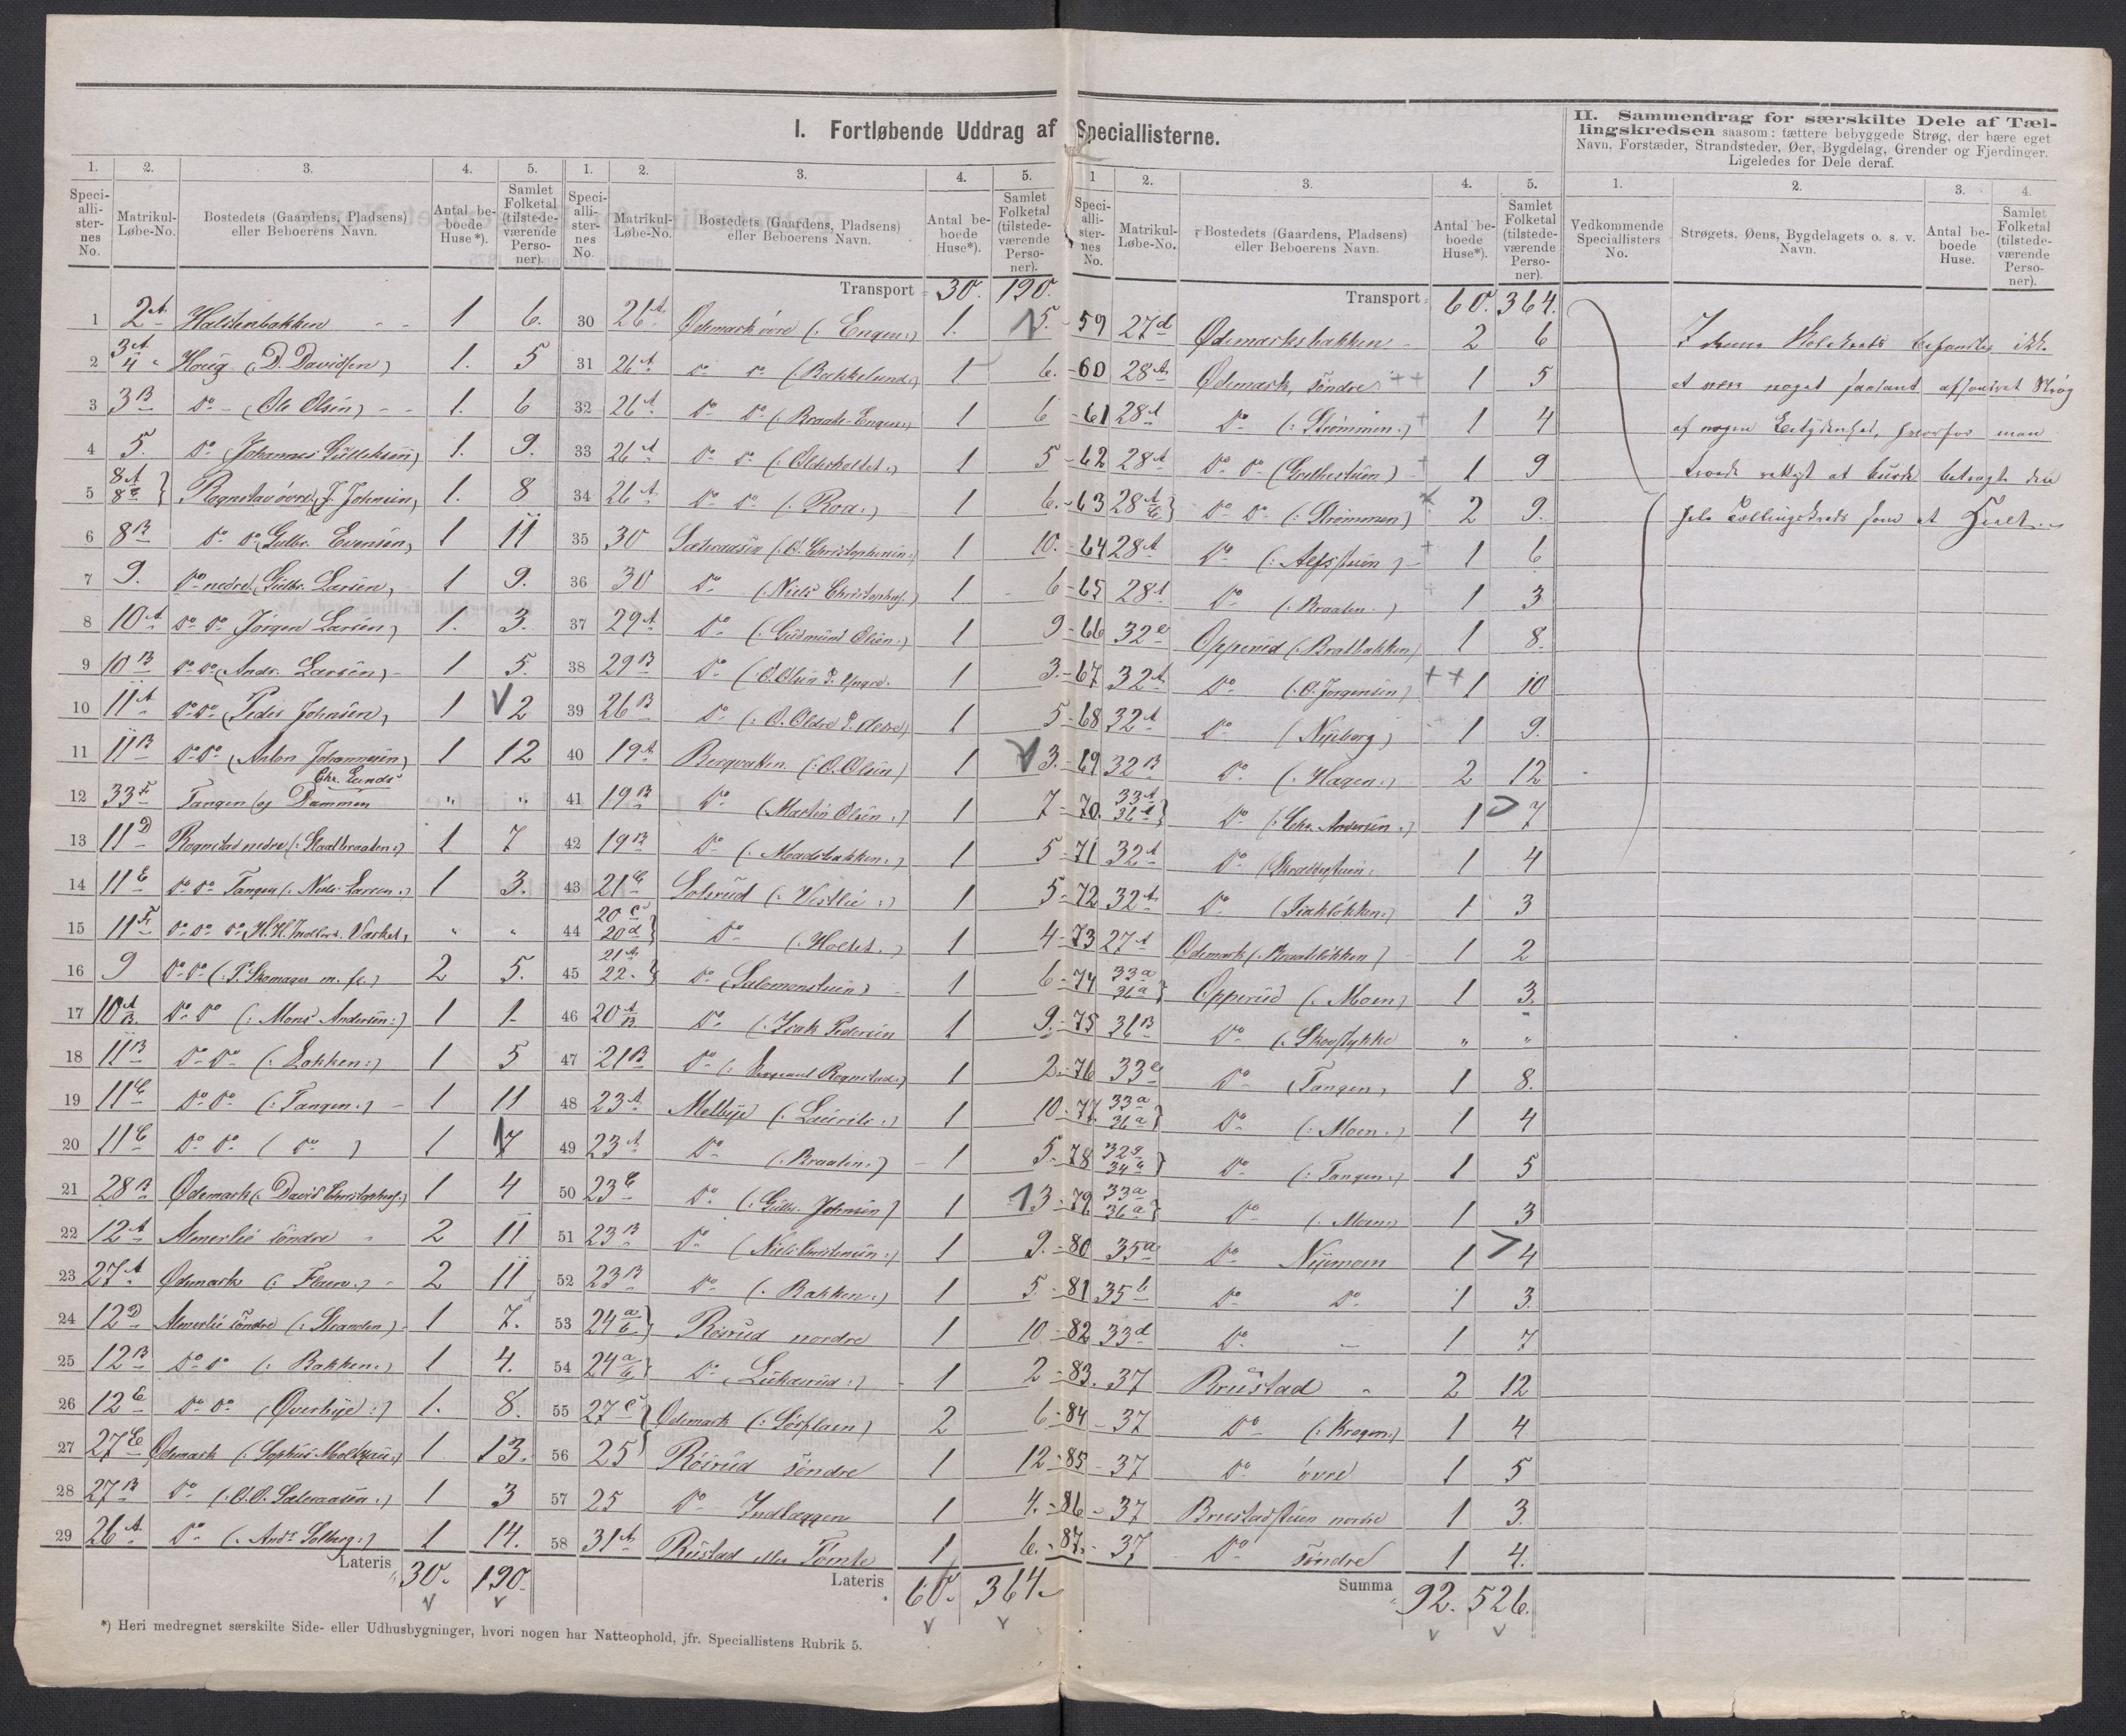 I. Fortløbende Uddrag af Speciallisterne.
1. 2. 3. 4. 5.
Speci-alli-ster-nes No. Matrikul-Løbe-No. Bostedets (Gaardens, Pladsens) eller Beboerens Navn. Antal be-boede Huse*). Samlet Folketal (tilstede-værende Perso-ner).
1 2A Haldenbakken 1 6.
2 3A 4 Houg (D. Davidsen) 1. 5
3 3B Do (Ole Olsen) 1. 6
4 5. Do Johannes Gulliksen) 1. 9.
5 8A 8C Rognstad øvre (J. Johnsen) 1. 8
6 8B Do Do Gulbr. Evensen, 1 11
7 9. Do nedre (Gulbr. Larsen, 1 9.
8 10A Do Do Jörgen Larsen, 1. 3.
9 10B Do Do (Andr. Larsen) 1 5.
10 11A Do Do (Peder Johnsen, 1 2
11 11B Do Do (Anton Johannesen) 1 12
12 33F Tangen og Dammen Chr. Lunds " "
13 11D Rognstad nedre (: Staalbraaten :) 1 7
14 11E Do Do Tangen (: Niels Larsen :) 1 3.
15 11F Do Do Do H. H. Værket, " "
16 9 Do Do (: P. Skomager m. fl.) 2 5.
17 10A B. Do Do (: Mons Andersen :) 1 1
18 11B Do Do (: Løkken :) 1 5
19 11C Do Do (: Tangen :) 1 11
20 11C Do Do ( Do ) 1 7
21 28B Ødemark (: David Christophers.) 1 4
22 12A Almerlie söndre 2 11
23 27A Ødemark (: Fluen :) 2 11
24 12D Almerlie söndre (: Stranden) 1 7.
25 12B Do Do (: Bakken :) 1 4.
26 12C Do Do (Øverbye :) 1. 8.
27 27E Ødemark (: Sophus Moltzau :) 1 13.
28 27B Do (: O. O. Sæteraasen :) 1 3
29 26A Do (: Andr Solberg :) 1 14.
Lateris 30. 190.
*) Heri medregnet særskilte Side- eller Udhusbygninger, hvori nogen har Natteophold, jfr. Speciallistens Rubrik 5.
1. 2. 3. 4. 5.
Speci-alli-ster-nes No. Matrikul-Løbe-No. Bostedets (Gaardens, Pladsens) eller Beboerens Navn. Antal be-boede Huse*). Samlet Folketal (tilstede-værende Perso-ner).
Transport 30. 190.
30 26A Ødemark övre (: Engen :) 1. 5.
31 26A Do Do (: Bakkelund :) 1 6.
32 26A Do Do (: Braate-Engen :) 1 6
33 26A Do Do (: Olderholtet :) 1 5
34 26A Do Do (: Roa :) 1 6.
35 30 Sæteraasen (: O. Christophersen :) 1 10.
36 30 Do (: Niels Christophers.) 1 6
37 29A Do (: Gudmund Olsen :) 1 9
38 29B Do (: O. Olsen d. Yngre. 1 3.
39 26B Do (: O. Oldre d. ældre) 1 5
40 19A Bergvaken (: O. Olsen) 1 3.
41 19B Do (Martin Olsen :) 1 7
42 19B Do (: Moadsbakken :) 1 5
43 21C Solerud (: Vestlie :) 1 5
44 20C 20d Do (: Holtet :) 1 4
45 21A 22. Do (Salomonstuen) 1 6
46 20A B Do (: Isak Pedersen 1 9.
47 21B Do (: Rognstad :) 1 2.
48 23A Melbye (: Laurits :) 1 10
49 23A Do (: Braaten :) 1 5.
50 23C Do (: Gulbr. Johnsen) 1 3
51 23B Do (Niels Christensen :) 1 9.
52 23B Do (: Bakken :) 1 5
53 24 a b Rösrud nordre 1 10
54 24 a b Do (: :) 1 2
55 27C Ødemark (: Sörflaen) 2 6
56 25 Rösrud söndre 1 12
57 25 Do Indlæggen 1 4.
58 31A Rustad eller Tomte 1 6.
Lateris 60. 364.
1 2. 3. 4. 5.
Speci-alli-ster-nes No. Matrikul-Løbe-No. Bostedets (Gaardens, Pladsens) eller Beboerens Navn. Antal be-boede Huse*). Samlet Folketal (tilstede-værende Perso-ner).
Transport 60. 364.
59 27d Ødemarksbakken 2 6
60 28A Ødemark, söndre 1 5
61 28A Do (: Strömmen :) 1 4
62 28A Do Do (Grethestuen) 1 9
63 28 A C Do Do (: Strömmen) 2 9.
64 28A Do (: Alfsstuen) 1 6
65 28A Do (: Braaten :) 1 3
66 32C Opperud (: Bratbakken) 1 8.
67 32A Do (: O. Jorgensen) 1 10
68 32A Do (Nyeborg) 1 9.
69 32B Do (: Hagen :) 2 12
70. 33A 36A Do (: Chr. Andersen :) 1 7
71 32A Do 1 4
72 32A Do (Isaklökken :) 1 3
73 27A Ødemark (: Braatelökken) 1 2
74 33a 36a Opperud (: Moen) 1 3.
75 31B Do (: Skovstykke " "
76 33C Do (Tangen, 1 8.
77. 33a 36a Do (: Moen :) 1 4
78 32g 34b Do (: Tangen :) 1 5
79 33a 36a Do (: Moen) 1 3
80 35a Do Nyemoen 1 4
81 35b Do Do 1 3.
82 33d Do – 1 7
83. 37 Brustad 2 12
84 37 Do (: Kragen :) 1 4
85 37 Do övre 1 5
86 37 Brustadstuen nordre 1 3.
87. 37 Do söndre 1 4.
Summa 92. 526.
II. Sammendrag for særskilte Dele af Tæl-
lingskredsen saasom: tættere bebyggede Strøg, der bære eget
Navn, Forstæder, Strandsteder, Øer, Bygdelag, Grender og Fjerdinger.
Ligeledes for Dele deraf.
1. 2. 3. 4.
Vedkommende Speciallisters No. Strøgets, Øens, Bygdelagets o. s. v. Navn. Antal be-boede Huse. Samlet Folketal (tilstede-værende Perso-ner).
I denne befandtes ikke
at være noget saadant afsondret Strøg
af nogen Betydenhed, hvorfor man
troede rettest at burde betragte den
hele Tællingskreds som et Heelt.